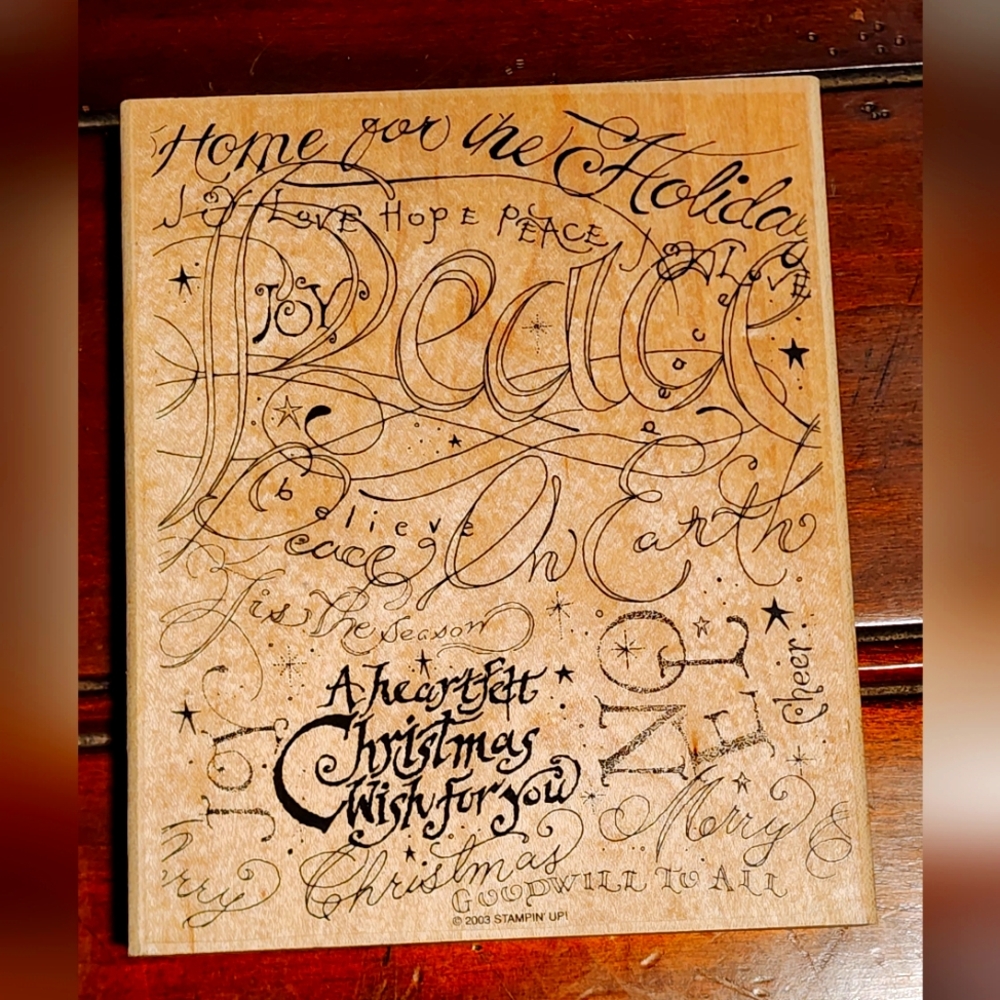 Home for the Holidays
JOY LOVE HOPE PEACE JOY LOVE
JOY
Peace
peace
believe
eace On Earth
Tis The Season
NOEL
Cheer
JOY
A heartfelt
Christmas
Wish for you
Merry &
erry Christmas
GOODWILL TO ALL
© 2003 STAMPIN' UP!